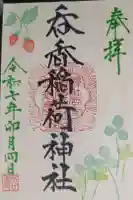 奉拝
呑香稲荷神社
令和六年卯月四日